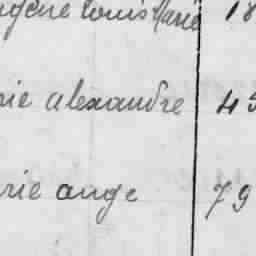 Louis Marie 18
rie alexandre 45
rie ange 79